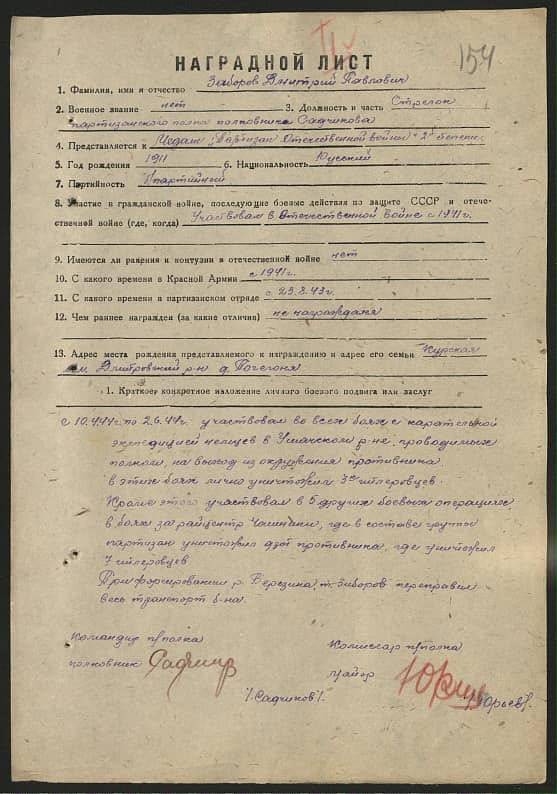 154
НАГРАДНОЙ ЛИСТ
1. Фамилия, имя и отчество Зиборов Дмитрий Павлович
2. Военное звание нет 3. Должность и часть Стрелок
партизанского полка полковника Садчикова
4. Представляется к Медали "Партизан Отечественной войны" 2й степени
5. Год рождения 1911 6. Национальность Русский
7. Партийность б/партийный
8. Участие в гражданской войне, последующие боевые действия по защите СССР и отече-
ственной войне (где, когда) Участвовал в Отечественной войне с 1941г.
9. Имеются ли ранения и контузии в отечественной войне нет
10. С какого времени в Красной Армии с 1941г.
11. С какого времени в партизанском отряде с 23.8.43г.
12. Чем раннее награжден (за какие отличия) не награждался
13. Адрес места рождения представляемого к награждению и адрес его семьи Курская
Дмитровский р-н д.
1. Краткое конкретное изложение личного боевого подвига или заслуг
с 10.4.44г. по 2.6.44г. участвовал во всех боях с карательной
экспедицией немцев в Ушачском р-не, проводимых
полком, на выход из окружения противника
в этих боях лично уничтожил 3х гитлеровцев.
Кроме этого участвовал в 5 других боевых операциях,
в боях за райцентр Чашники, где в составе группы
партизан уничтожил дзот противника, где уничтожил
7 гитлеровцев
При форсировании р. Березина, т. Зиборов переправил
весь транспорт б-на.
Командир п/полка
полковник
/Садчиков/.
Комиссар п/полка
майор
/Юрьев/.